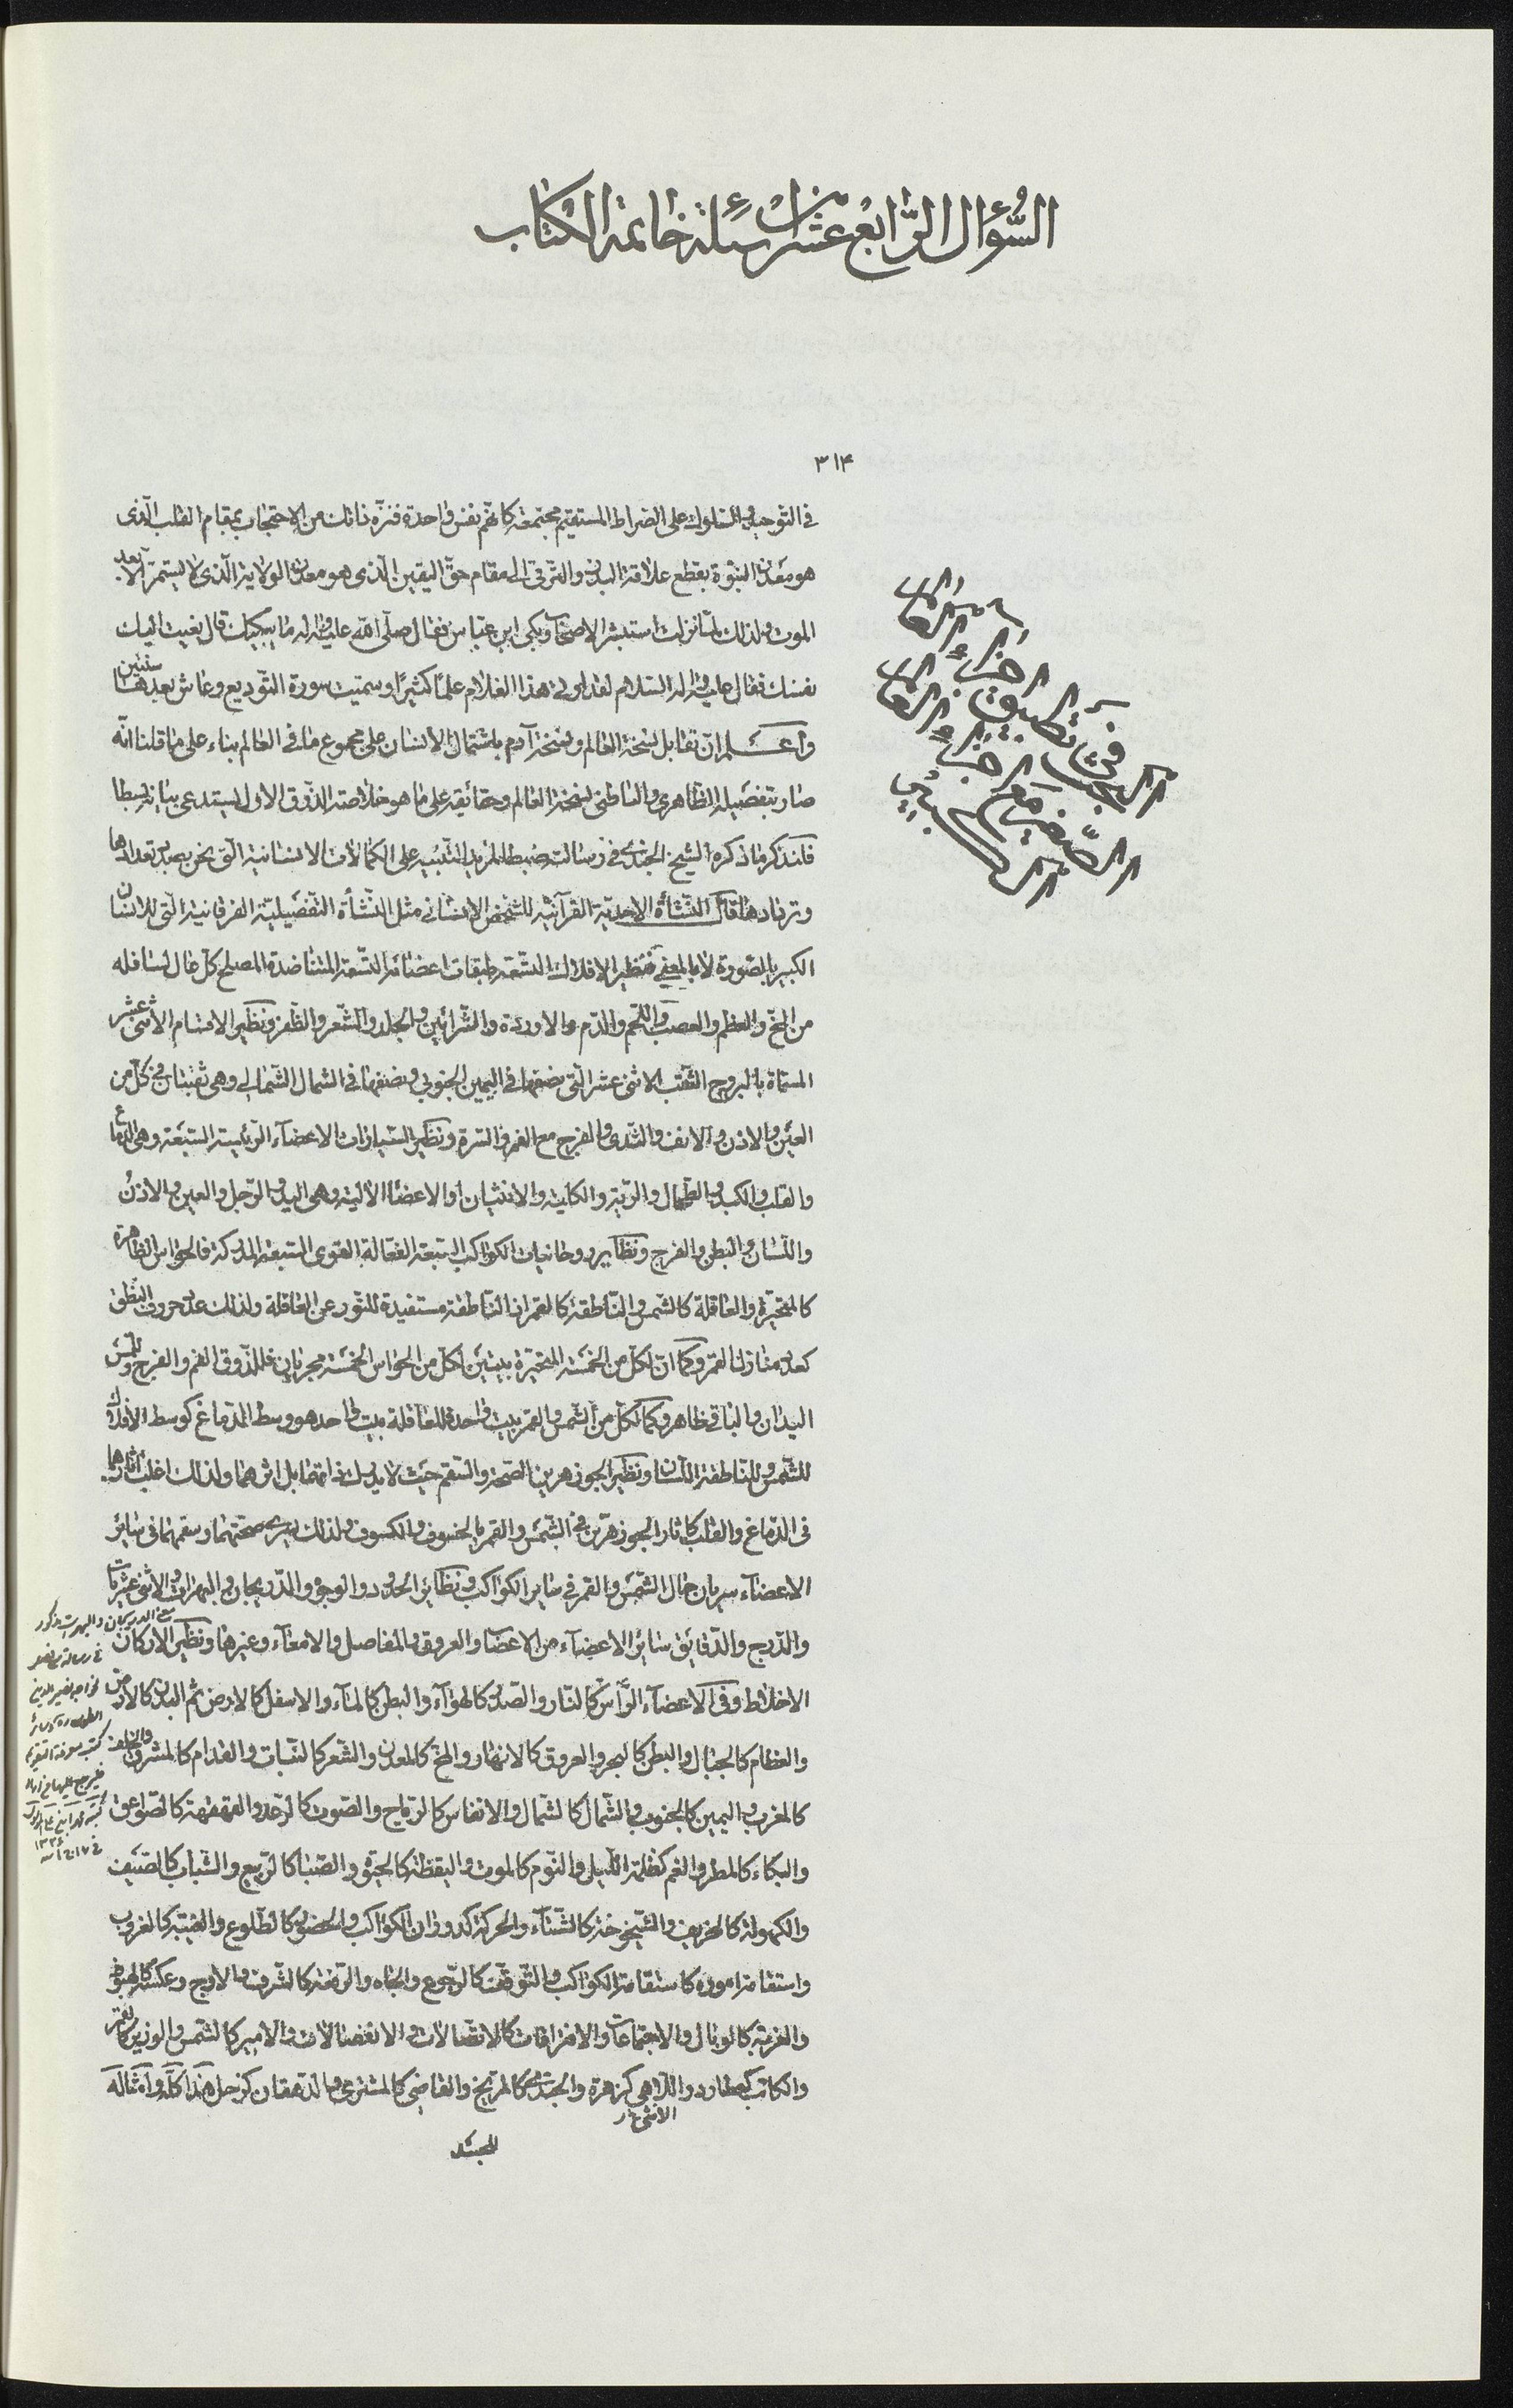 السُّؤال الرَّابع عشر من اسئلة خاتمة الكتاب
٣١۴
في التوحيد والسلوك على الصراط المستقيم مجتمعة كانهم نفس واحدة فنزه ذاتك من الاحتجاب بمقام القلب الّذى
هو معدن النبوّة بقطع علاقة البدن والترقى الى مقام حقّ اليقين الّذى هو معدن الولاية الّذى لا يستمرّ الا بعد
الموت ولذلك لمّا نزلت استبشر الاصحاب وبكى ابن عبّاس فقال صلّى الله عليه واله ما يبكيك قال نعيت اليك
نفسك فقال عليه واله السّلام لقد اوتى هذا الغلام علمًا كثيرًا وسمّيت سورة التّوديع وعاش بعدها سنتين
واعلم انّ تقابل نسخة العالم ونسخة آدم باشتمال الانسان على مجموع ما فى العالم بناء على ما قلنا انّه
صار بتفصيله الظاهرى والباطنى نسخة العالم وحقائقه على ما هو خلاصة الذّوق الاول يستدعى بيانه بسطا
فلنذكر ما ذكره الشيخ الجندى فى رسالته ضبطا لمزيد التنبيه على الكمالات الانسانية التى نحن بصدد تعدادها
وتردادها قال النّشأة الاحدية القرآنيّة للشخص الانسانى مثل النّشأة التفصيليّة الفرقانية الّتى للانسان
الكبير بالصّورة لا بالمعنى فنظير الافلاك التسعة طبقات اعضائه التّسعة المتناضدة المصلح كلّ عال لسافله
من المخّ والعظم والعصب واللّحم والدّم والاوردة والشّرائين والجلد والشّعر والظّفر ونظير الاقسام الاثنى عشر
المسمّاة بالبروج الثّقب الاثنى عشر الّتى نصفها فى اليمين الجنوبى ونصفها فى الشمال الشّمالى وهى ثقبتان فى كلّ من
العين والاذن والانف والثّدى والفرج مع الفم والسّرة ونظير السّيارات الاعضاء الرّئيسة السّبعة وهى الدّماغ
والقلب والكبد والطّحال والرّية والكلية والانثيان او الاعضاء الآلية وهى اليد والرّجل والعين والاذن
واللّسان والبطن والفرج ونظاير روحانيات الكواكب السّبعة الفعّالة القوى السّبعة المدركة فالحواس الظّاهرة
كالمتحيّرة والعاقلة كالشّمس والنّاطقة كالقمر اذ النّاطقة مستفيدة للنّور عن العاقلة ولذلك عدد حروف النّطق
كعدد منازل القمر وكما انّ لكلّ من الخمسة المتحيّرة بيتين لكلّ من الحواس الخمسة مجريان فللذّوق الفم والفرج وللّمس
اليدان والباقى ظاهر وكما لكلّ من الشّمس والقمر بيت واحد فللعاقلة بيت واحد هو وسط الدّماغ كوسط الافلاك
للشّمس وللناطقة اللّسان ونظير الجوزهرين الصّحة والسّقم حيث لا يدرك ذاتهما بل اثرهما ولذلك اغلب آثارهما
فى الدّماغ والقلب كآثار الجوزهرين فى الشّمس والقمر بالخسوف والكسوف ولذلك يسرى صحّتهما وسقمهما فى سائر
الاعضاء سريان حال الشّمس والقمر فى ساير الكواكب ونظائر الحدود والوجوه والدّريجان والبهرات والاثنى عشريات
والدّرج والدّقايق سائر الاعضاء من الاعضا والعروق والمفاصل والامعاء وغيرها ونظير الاركان
الاخلاط وفى الاعضاء الرّاس كالنّار والصّدر كالهواء والبطن كالماء والاسفل كالارض ثم البدن كالارض
والعظام كالجبال والبطن كالبحر والعروق كالانهار والمخّ كالمعدن والشّعر كالنّبات والقدّام كالمشرق والخلف
كالمغرب واليمين كالجنوب والشّمال كالشّمال والانفاس كالرّياح والصّوت كالرّعد والقهقهة كالصّواعق
والبكاء كالمطر والغم كظلمة اللّيل والنّوم كالموت واليقظة كالحيوة والصّبا كالرّبيع والشّباب كالصّيف
والكهولة كالخريف والشّيخوخة كالشّتاء والحركة كدوران الكواكب والحضور كالطّلوع والغيبة كالغروب
واستقامة اموره كاستقامة الكواكب والتّوقّف كالرّجوع والجاه والرّفعة كالشّرف والاوج وعكسه كالهبوط
والغربة كالوبال والاجتماعات والافتراقات كالاتّصالات والانفصالات والامير كالشّمس والوزير كالقمر
والكاتب كعطارد والملاهى كزهرة والجندى كالمرّيخ والقاضى كالمشترى والدّهقان كزحل هذا كلّه وامثاله
فى تطبيق اجزاء العالم
الصّغير مع اجزاء العالم
الكبير